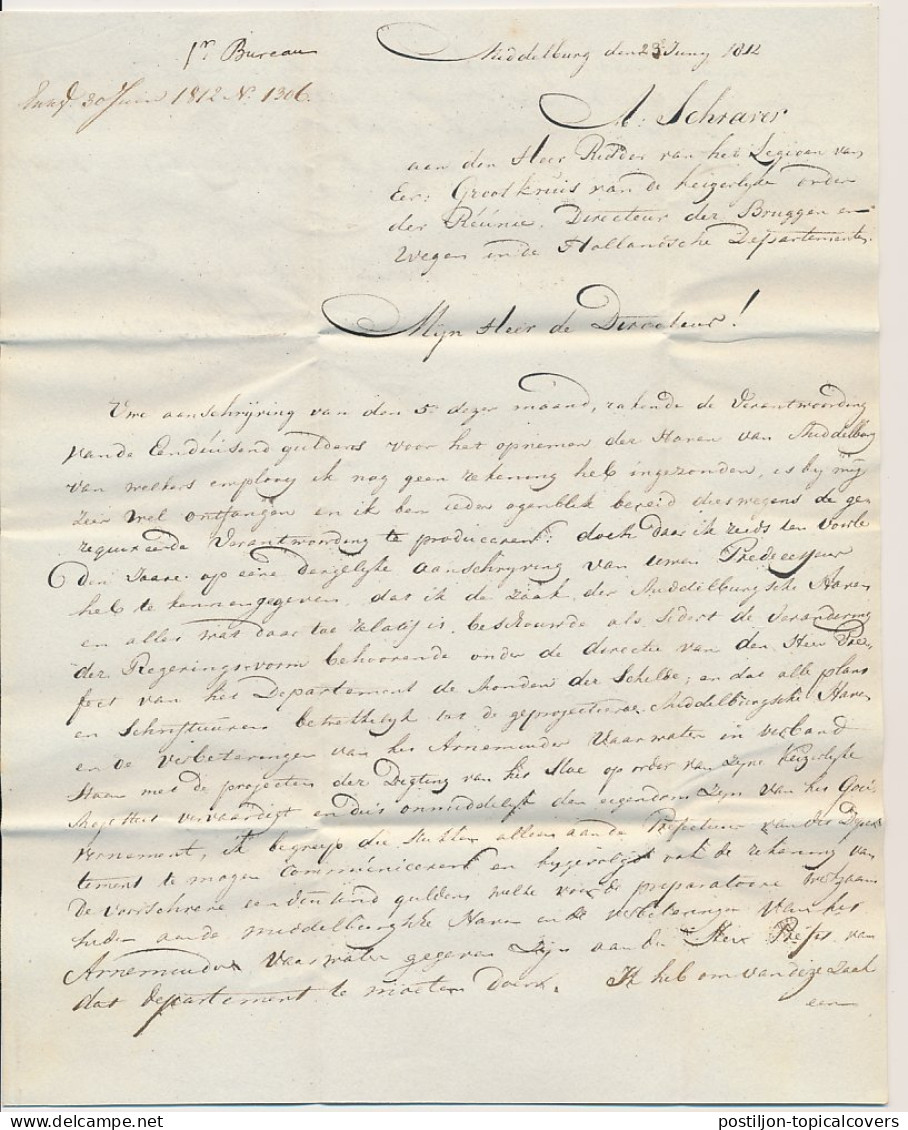 1r. Bureau
Middelburg den 28 Juny 1812
30 Juin 1812 N. 1306.
A: Schraver
aan den Heer Ridder van het Legioen van
Eer: Grootkruis van de keizerlyke order
der Réunie, Directeur der Bruggen en
Wegen in de Hollandsche Departementen.
Mijn Heer de Directeur!
Uwe aanschrijving van den 5e dezer maand, rakende de Verantwoording
van de Eenduisend guldens voor het opnemen der Haven van Middelburg
van welkers employ ik nog geen rekening heb ingezonden, is by mij
zeer wel ontfangen en ik ben ieder ogenblik bereid dieswegens de ge
requireerde Verantwoording te produceeren: doch daar ik reeds ten voorle
den Jaare op eene dergelyke aanschryving van uwen Predecesseur
heb te kennen gegeven, dat ik de zaak der Middelburgsche Haven
en alles wat daar toe relatif is, beschouwde als sedert de Verandering
der Regeringsvorm behoorende onder de directie van den Heer Prae,
fect van het Departement de Monden der Schelde; en dat alle plans
en Schriftuuren betrekkelyk tot de geprojecteerde Middelburgsche Haven
en de verbeteringen van het Arnemuider Vaarwater in verband
staan met de projecten der Digting van het Sloe op order van Zyne Keizerlyke
Majesteit vervaardigt en dus onmiddelyk den eigendom zyn van het Gou,
vernement, ik begreep die stukken alleen aan de Prefectuur van dit Depar
tement te mogen communiceeren en bygevolg ook de rekening van
de voorschreve eenduisend guldens welke voor de preparatoire werkzaam
heden aan de Middelburgsche Haven en de verbeteringen van het
Arnemuider Vaarwater gegeven zyn aan den Heer Prefet van
dat departement te moeten doen. Ik heb om van deze zaak
een
postiljon-topicalcovers